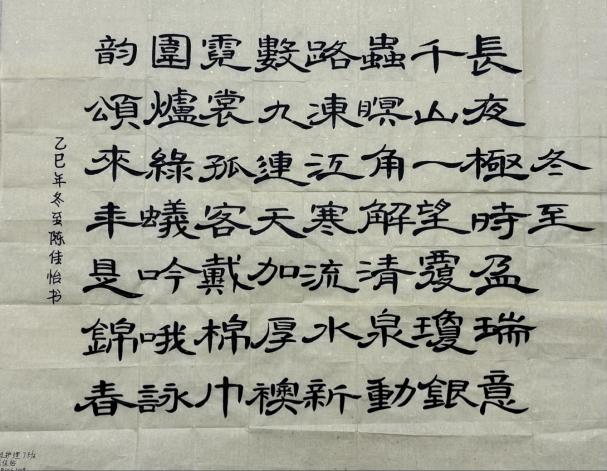 冬至
長夜極時盈瑞意
千山一望覆瓊銀
蟲瞑角解清泉動
路凍江寒流水新
數九連天加厚襖
霓裳孤客戴棉巾
圍爐綠蟻吟哦詠
韵頌來年是錦春
乙巳年冬至陈佳怡书